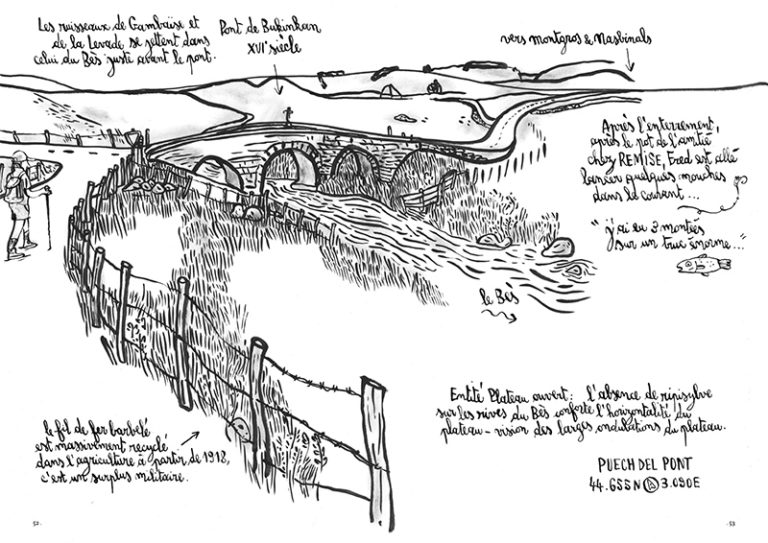 Les ruisseaux de Gambaïse et
de la Levade se jettent dans
celui du Bès juste avant le pont.
Pont de
XVIe siècle
vers montgros & Nasbinals
Après l'enterrement,
après le pot de l'amitié
chez REMISE, Fred est allé
lancer quelques mouches
dans le courant...
"j'ai eu 3 montées
sur un truc énorme..."
le Bès
le fil de fer barbelé
est massivement recyclé
dans l'agriculture à partir de 1918,
c'est un surplus militaire.
Entité Plateau ouvert : l'absence de ripisylve
sur les rives du Bès conforte l'horizontalité du
plateau - vision des larges ondulations du plateau.
PUECH DEL PONT
44.655N 3.090E
52.
.53